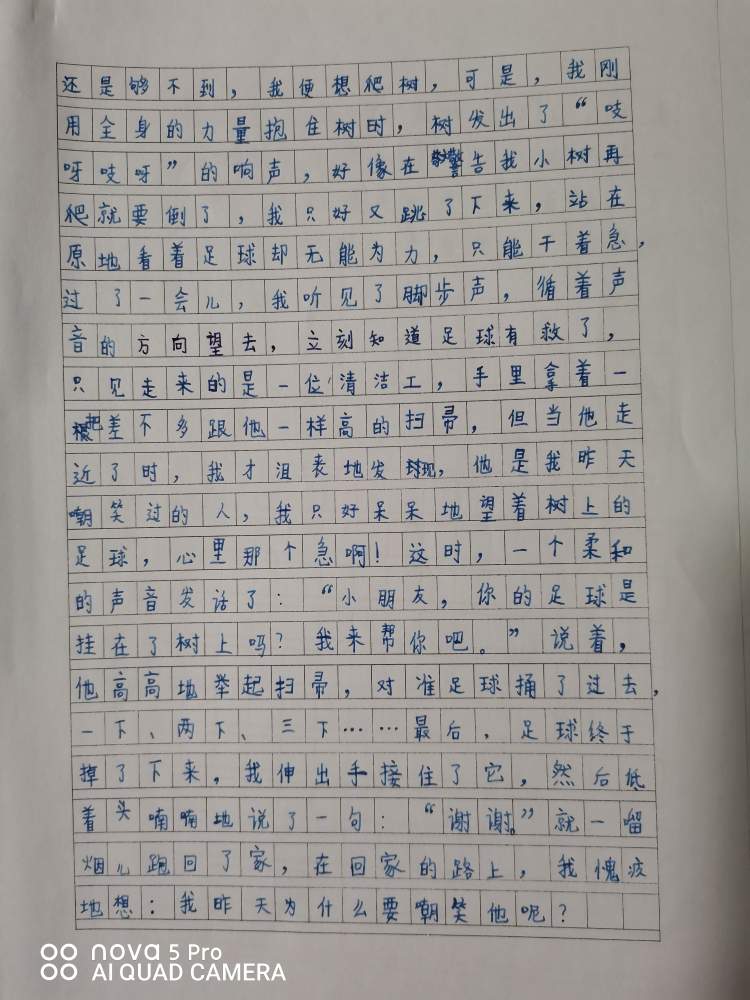 还是够不到，我便想爬树，可是，我刚
用全身的力量抱住树时，树发出了“吱
呀吱呀”的响声，好像在警告我小树再
爬就要倒了，我只好又跳了下来，站在
原地看着足球却无能为力，只能干着急，
过了一会儿，我听见了脚步声，循着声
音的方向望去，立刻知道足球有救了，
只见走来的是一位清洁工，手里拿着一
把差不多跟他一样高的扫帚，但当他走
近了时，我才沮丧地发现，他是我昨天
嘲笑过的人，我只好呆呆地望着树上的
足球，心里那个急啊！这时，一个柔和
的声音发话了：“小朋友，你的足球是
挂在了树上吗？我来帮你吧。”说着，
他高高地举起扫帚，对准足球捅了过去，
一下、两下、三下……最后，足球终于
掉了下来，我伸出手接住了它，然后低
着头喃喃地说了一句：“谢谢。”就一溜
烟儿跑回了家，在回家的路上，我愧疚
地想：我昨天为什么要嘲笑他呢？
nova 5 Pro
AI QUAD CAMERA